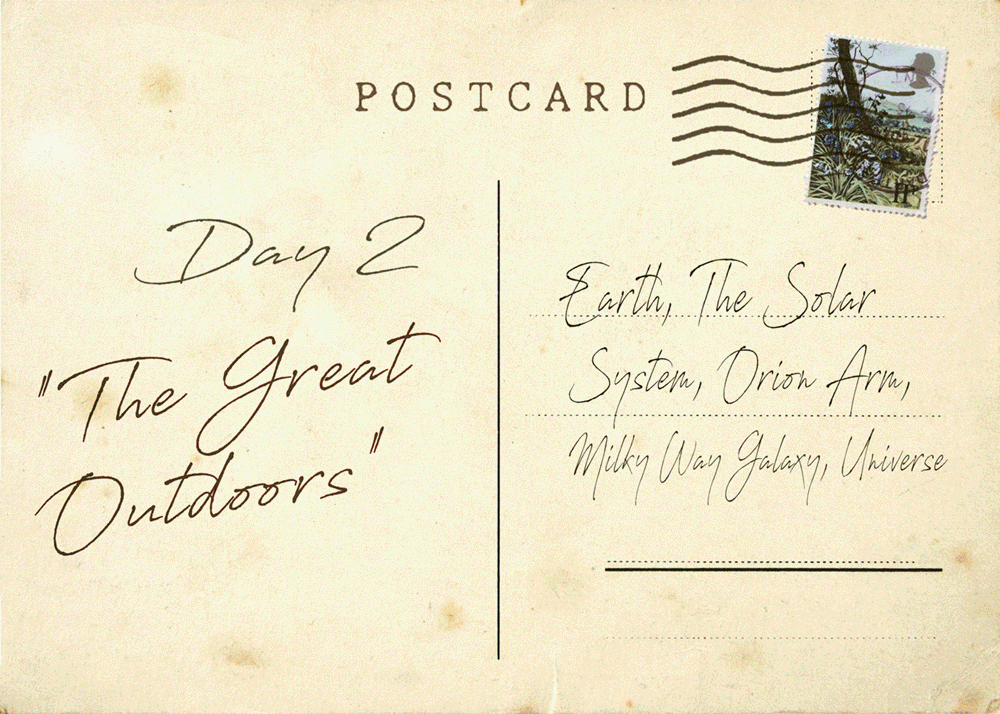 POSTCARD
Day 2
"The Great
Outdoors"
Earth, The Solar
System, Orion Arm,
Milky Way Galaxy, Universe